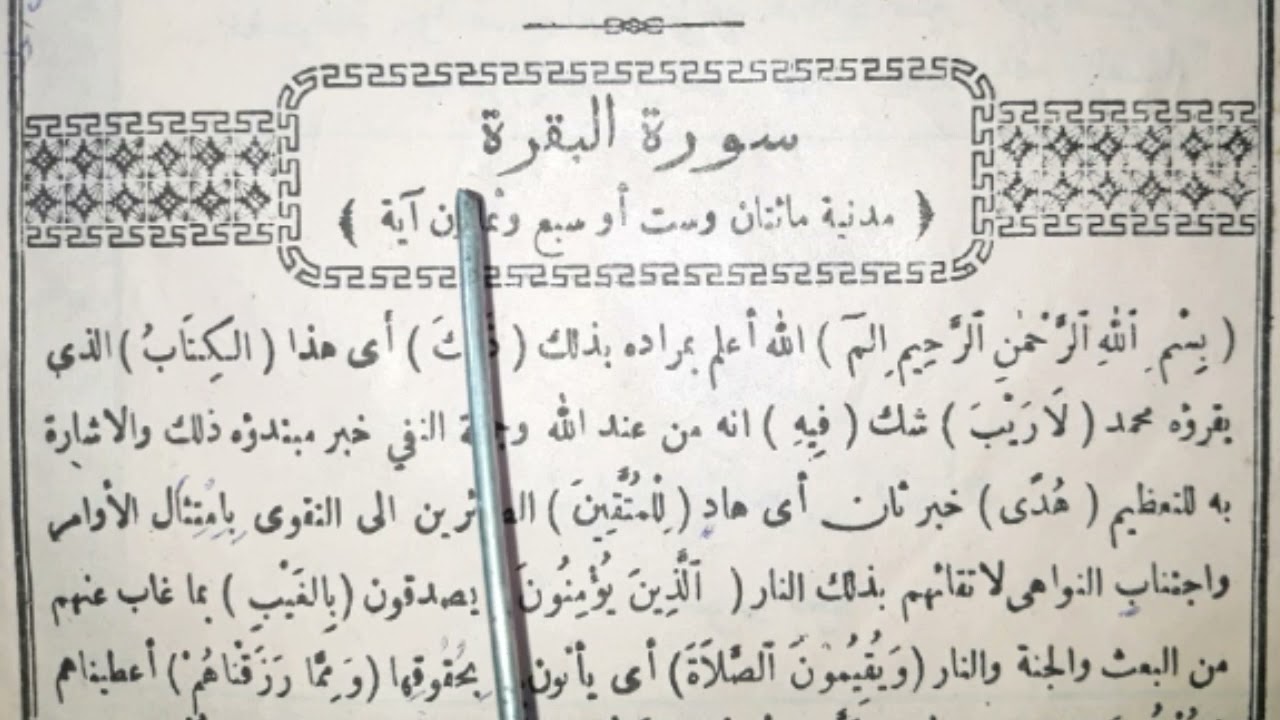 سورة البقرة
( مدنية مائتان وست أو سبع وثمانون آية )
( بِسْمِ ٱللهِ ٱلرَّحْمٰنِ ٱلرَّحِيمِ الٓمٓ ) الله أعلم بمراده بذلك ( ) أى هذا ( الكِتَابُ ) الذي
يقرؤه محمد ( لَا رَيْبَ ) شك ( فِيهِ ) انه من عند الله وجملة النفي خبر مبتدؤه ذلك والاشارة
به للتعظيم ( هُدًى ) خبر ثان أى هاد ( لِلْمُتَّقِينَ ) الصائرين الى التقوى بِامْتِثَال الأوامر
واجتناب النواهى لاتقائهم بذلك النار ( ٱلَّذِينَ يُؤْمِنُونَ يصدقون ( بِالغَيْبِ ) بما غاب عنهم
من البعث والجنة والنار ( وَيُقِيمُونَ ٱلصَّلَاةَ ) أى يأتون بِحُقُوقِها ( وَمِمَّا رَزَقْنَاهُمْ ) أعطيناهم